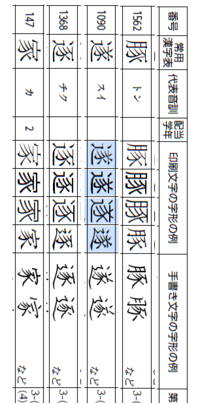 番号 常用漢字表 代表音訓 配当学年 印刷文字の字形の例 手書き文字の字形の例 第
1562 豚 トン 豚 豚 豚 豚 豚 豚
1090 遂 スイ 遂 遂 遂 遂 遂 遂 など 3-(
1368 逐 チク 逐 逐 逐 逐 逐 逐 など 3-(
147 家 カ 2 家 家 家 家 家 家 など 3-(
(4)